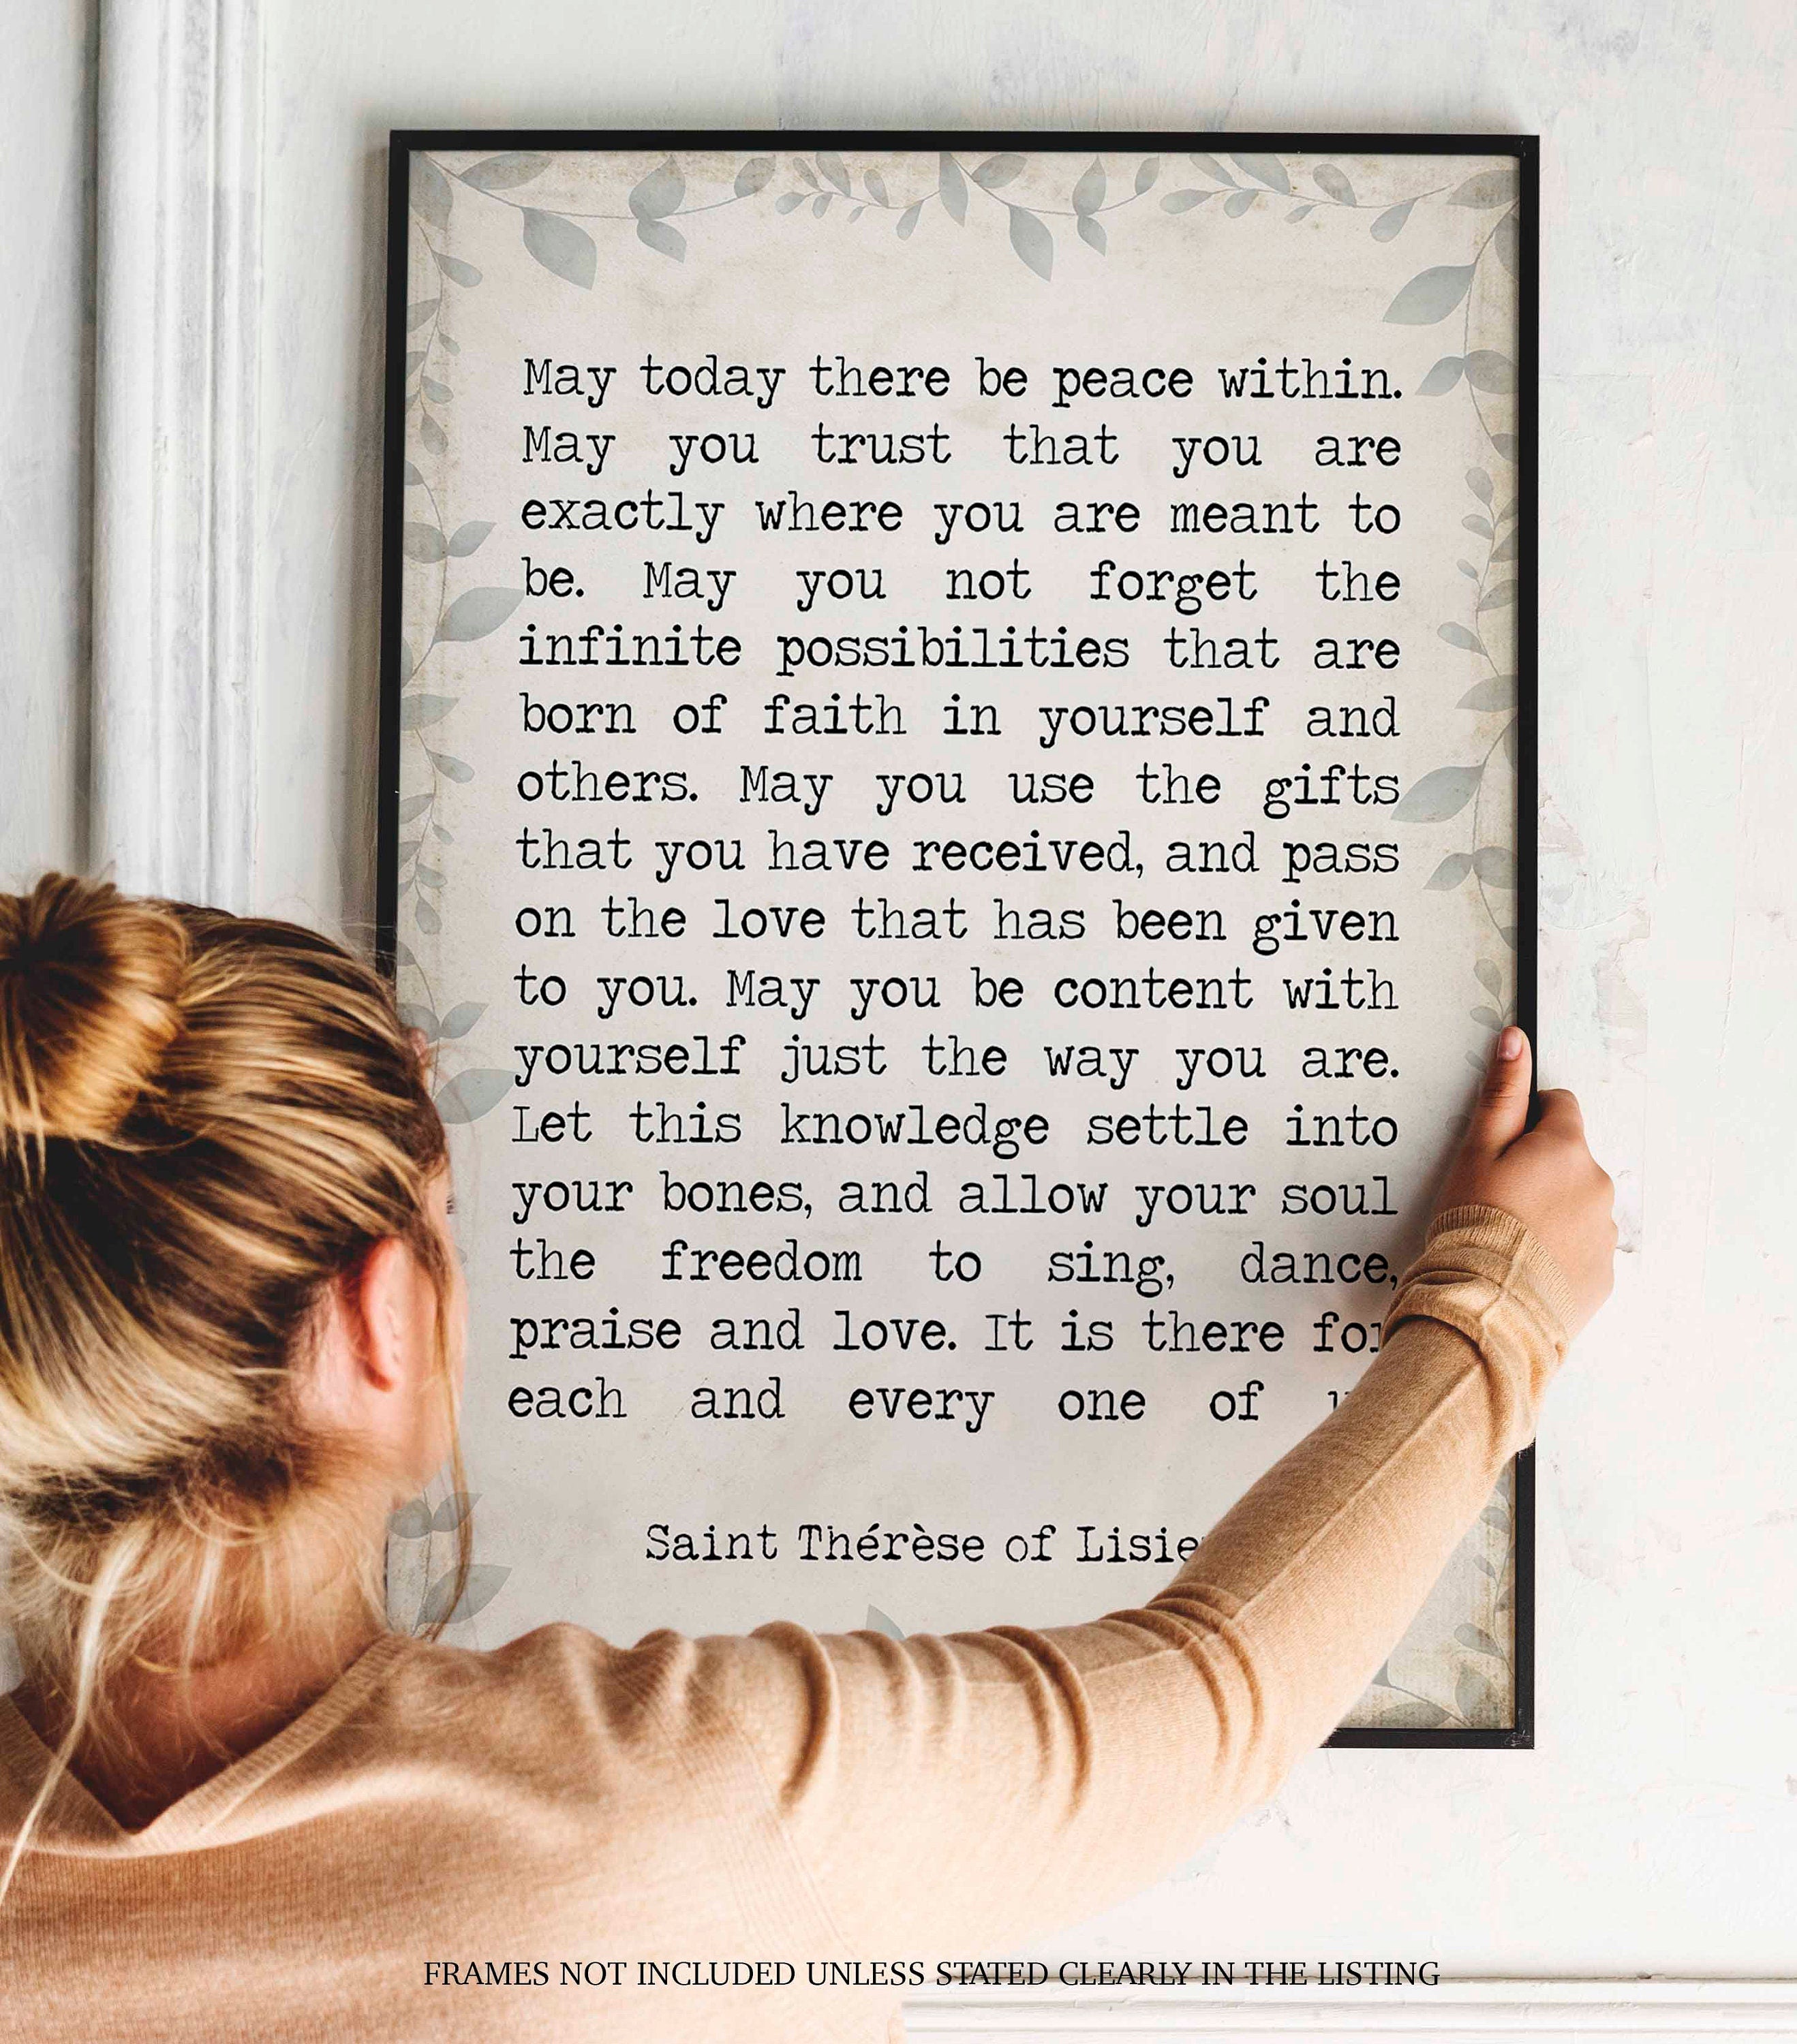 May today there be peace within.
May you trust that you are
exactly where you are meant to
be. May you not forget the
infinite possibilities that are
born of faith in yourself and
others. May you use the gifts
that you have received, and pass
on the love that has been given
to you. May you be content with
yourself just the way you are.
Let this knowledge settle into
your bones, and allow your soul
the freedom to sing, dance,
praise and love. It is there for
each and every one of
Saint Thérèse of
FRAMES NOT INCLUDED UNLESS STATED CLEARLY IN THE LISTING